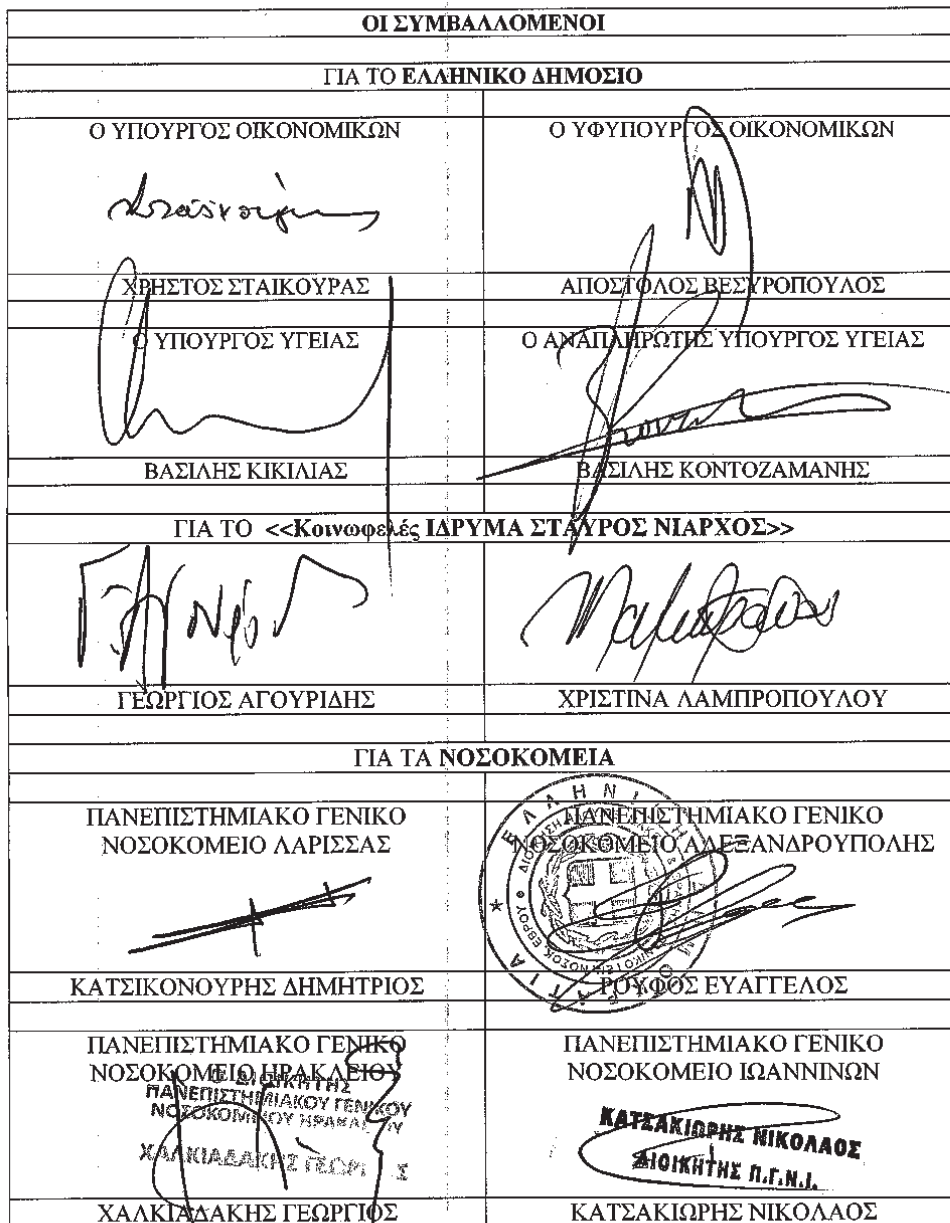 ΟΙ ΣΥΜΒΑΛΛΟΜΕΝΟΙ
ΓΙΑ ΤΟ ΕΛΛΗΝΙΚΟ ΔΗΜΟΣΙΟ
Ο ΥΠΟΥΡΓΟΣ ΟΙΚΟΝΟΜΙΚΩΝ
Ο ΥΦΥΠΟΥΡΓΟΣ ΟΙΚΟΝΟΜΙΚΩΝ
ΧΡΗΣΤΟΣ ΣΤΑΙΚΟΥΡΑΣ
ΑΠΟΣΤΟΛΟΣ ΒΕΣΥΡΟΠΟΥΛΟΣ
Ο ΥΠΟΥΡΓΟΣ ΥΓΕΙΑΣ
Ο ΑΝΑΠΛΗΡΩΤΗΣ ΥΠΟΥΡΓΟΣ ΥΓΕΙΑΣ
ΒΑΣΙΛΗΣ ΚΙΚΙΛΙΑΣ
ΒΑΣΙΛΗΣ ΚΟΝΤΟΖΑΜΑΝΗΣ
ΓΙΑ ΤΟ <<Κοινωφελές ΙΔΡΥΜΑ ΣΤΑΥΡΟΣ ΝΙΑΡΧΟΣ>>
ΓΕΩΡΓΙΟΣ ΑΓΟΥΡΙΔΗΣ
ΧΡΙΣΤΙΝΑ ΛΑΜΠΡΟΠΟΥΛΟΥ
ΓΙΑ ΤΑ ΝΟΣΟΚΟΜΕΙΑ
ΠΑΝΕΠΙΣΤΗΜΙΑΚΟ ΓΕΝΙΚΟ
ΝΟΣΟΚΟΜΕΙΟ ΛΑΡΙΣΣΑΣ
ΠΑΝΕΠΙΣΤΗΜΙΑΚΟ ΓΕΝΙΚΟ
ΝΟΣΟΚΟΜΕΙΟ ΑΛΕΞΑΝΔΡΟΥΠΟΛΗΣ
ΚΑΤΣΙΚΟΝΟΥΡΗΣ ΔΗΜΗΤΡΙΟΣ
ΡΟΥΦΟΣ ΕΥΑΓΓΕΛΟΣ
ΠΑΝΕΠΙΣΤΗΜΙΑΚΟ ΓΕΝΙΚΟ
ΝΟΣΟΚΟΜΕΙΟ ΗΡΑΚΛΕΙΟΥ
Ο ΔΙΟΙΚΗΤΗΣ
ΠΑΝΕΠΙΣΤΗΜΙΑΚΟΥ ΓΕΝΙΚΟΥ
ΝΟΣΟΚΟΜΕΙΟΥ ΗΡΑΚΛΕΙΟΥ
ΧΑΛΚΙΑΔΑΚΗΣ ΓΕΩΡΓΙΟΣ
ΧΑΛΚΙΑΔΑΚΗΣ ΓΕΩΡΓΙΟΣ
ΠΑΝΕΠΙΣΤΗΜΙΑΚΟ ΓΕΝΙΚΟ
ΝΟΣΟΚΟΜΕΙΟ ΙΩΑΝΝΙΝΩΝ
ΚΑΤΣΑΚΙΩΡΗΣ ΝΙΚΟΛΑΟΣ
ΔΙΟΙΚΗΤΗΣ Π.Γ.Ν.Ι.
ΚΑΤΣΑΚΙΩΡΗΣ ΝΙΚΟΛΑΟΣ